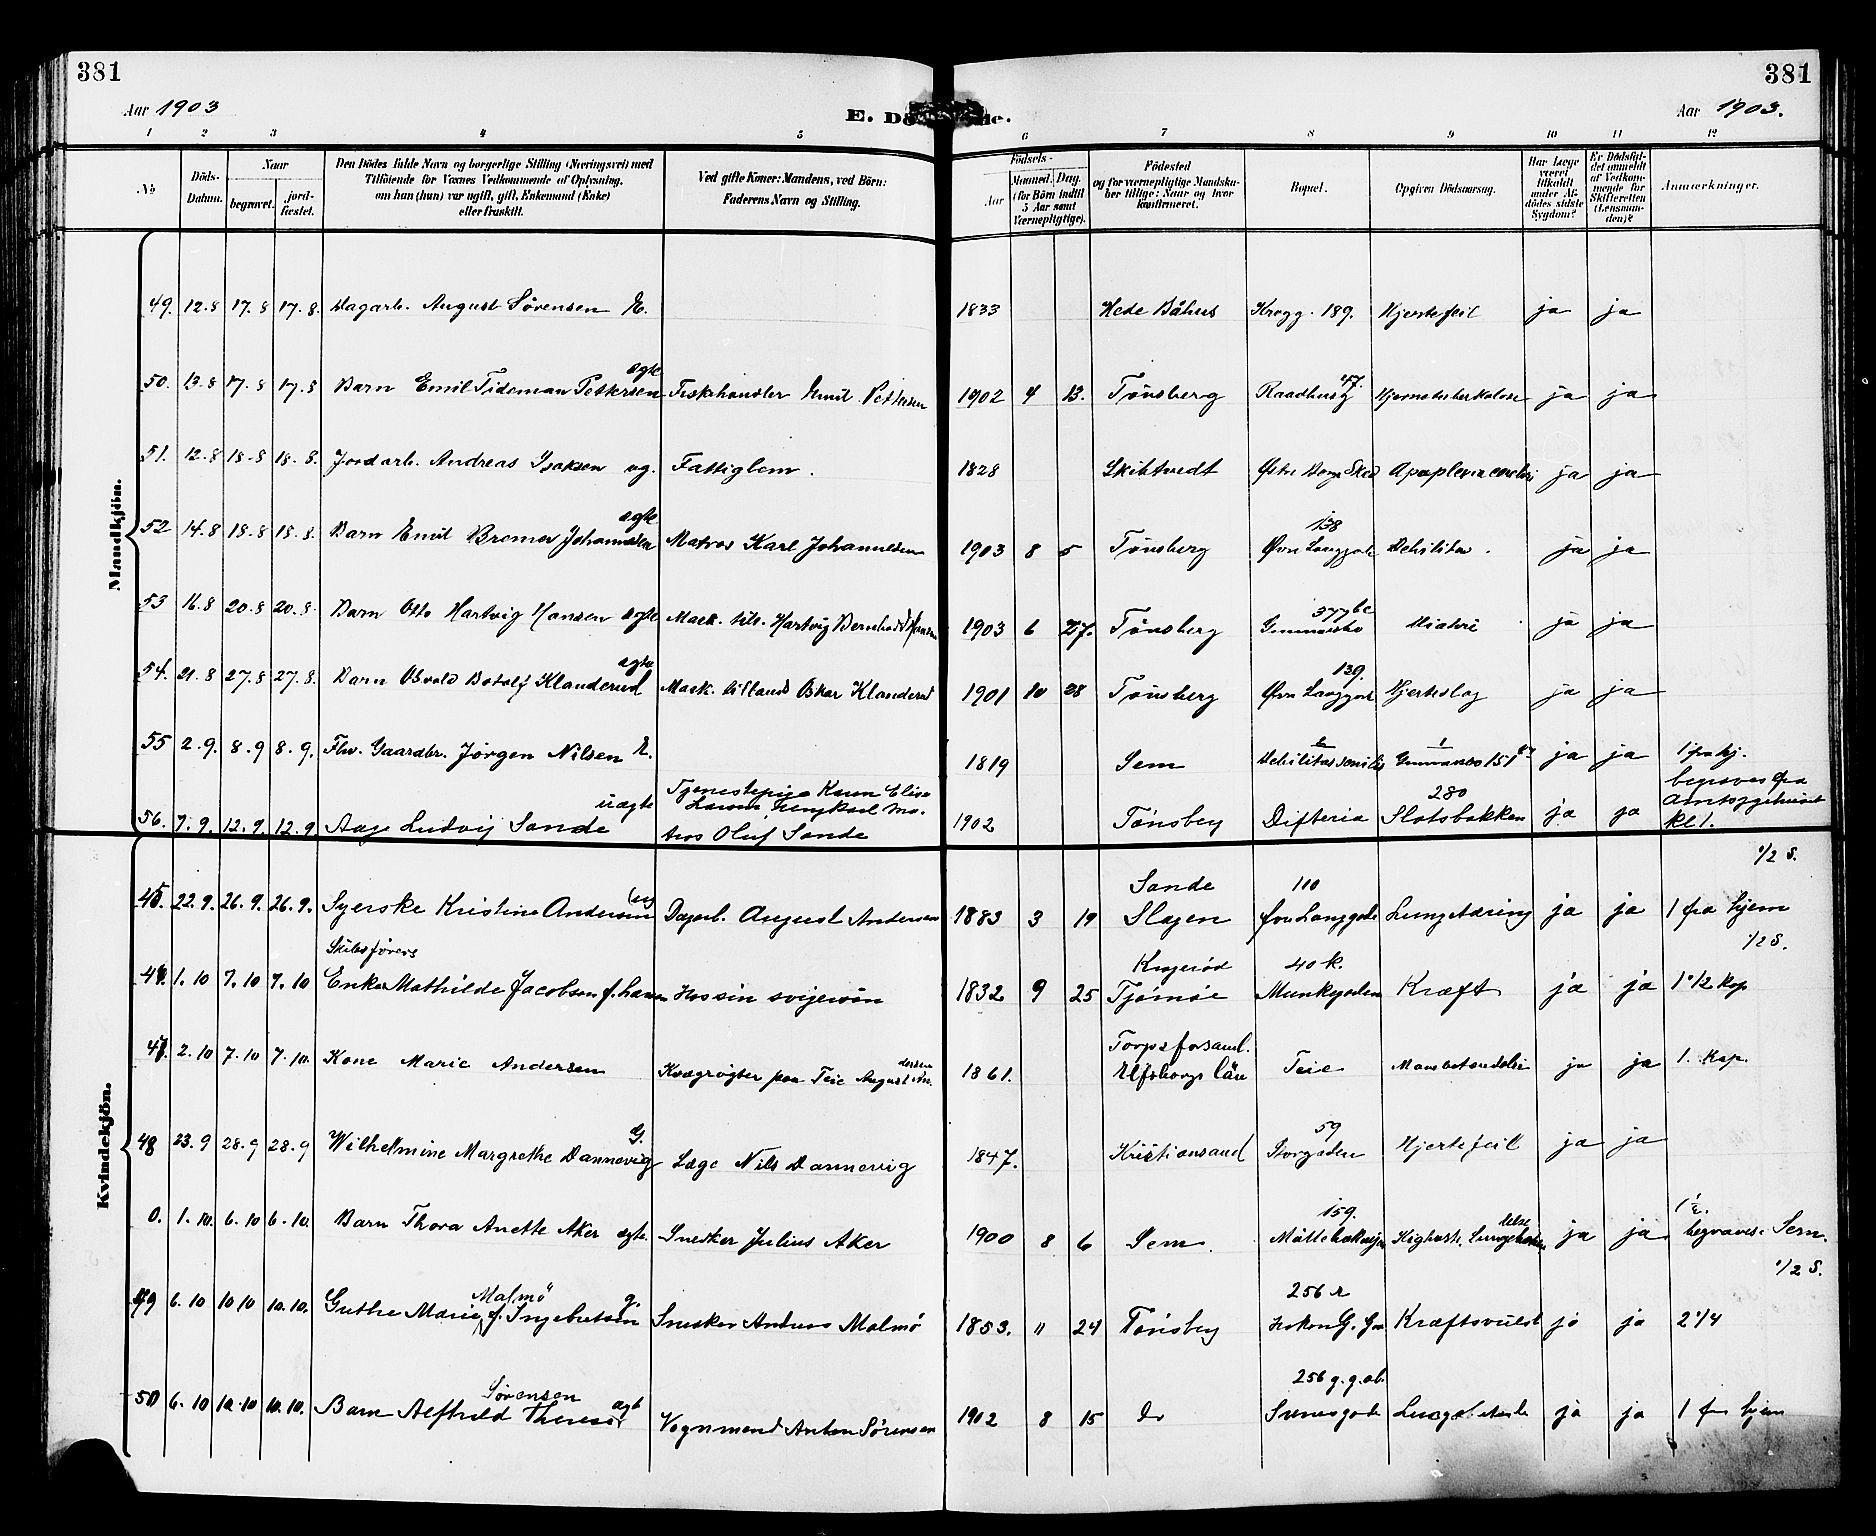 381
381
Aar 1903
E. Dö de.
Aar 1903.
1 2 3 4 5 6 7 8 9 10 11 12
No
Döds-Datum.
Naar
begravet.
jordfæstet.
Den Dödes fulde Navn og borgerlige Stilling (Næringsvei) med
Tilföiende for Voxnes Vedkommende af Oplysning,
om han (hun) var ugift, gift, Enkemand (Enke)
eller fraskilt.
Ved gifte Koner: Mandens, ved Börn:
Faderens Navn og Stilling.
Födsels-
Aar
Maaned. Dag.
(for Börn indtil
5 Aar samt
Værnepligtige).
Födested
og for værnepligtige Mandska-
ber tillige: Naar og hvor
konfirmeret.
Bopæl.
Opgiven Dödsaarsag.
Har Læge
været
tilkaldt
under Af-
dödes sidste
Sygdom?
Er Dödsfal-
det anmeldt
af Vedkom-
mende for
Skifteretten
(Lensman-
den)?
Anmærkninger.
Mandkjön.
49. 12.8 17.8 17.8. Dagarb. August Sörensen E. 1833 Hede Båhus Krogg. 189. Hjertefeil ja ja
50. 13.8 17.8 17.8 Barn Emil Tideman Pettersen ægte Fiskehandler Emil Pettersen 1902 4 13. Tönsberg Raadhusg 47. Hjernetuberkulose ja ja
51. 12.8 18.8 18.8. Jordarb. Andreas Isaksen ug. Fattiglem. 1828 Skibtvedt ja ja
52 14.8 18.8 18.8. Barn Emil Bremer Johannesen ægte Matros Karl Johannesen 1903 8 5 Tönsberg Övre Langgade 138 Debilitas. ja ja
53 16.8 20.8 20.8. Barn Otto Hartvig Hansen ægte Mask. Hartvig Bernhard Hansen 1903 6 27. Tönsberg 377 bc ja ja
54. 21.8 27.8 27.8. Barn Osvald Botolf Klanderud ægte Mask. Oskar Klanderud 1901 10 28 Tönsberg Övre Langgade 139. Hjerteslag ja ja
55 2.9. 8.9 8.9. Fhv. Gaardbr. Jörgen Nilsen E. 1819 Sem Debilitas senilis 151 ja ja 1 fra hj.
begraves fra
Amtssygehuset
kl 1.
56. 7.9. 12.9 12.9 Aage Ludvig Sande uægte Tjenestepige Karen Elise
Larsen, Ma-
tros Oluf Sande 1902 Tönsberg Difteria Slotsbakken 280 ja ja
Kvindekjön.
45. 22.9. 26.9. 26.9. Syerske Kristine Andersen (ug Dagarb. August Andersen 1883 3 19 Sande
Slagen 110
Övre Langgade Lungetæring ja ja 1 fra hjem 1/2 S.
46. 1.10 7.10 7.10 Skibsförers
Enke Mathilde Jacobsen f. Larsen Hos sin svigersön 1832 9 25 Krogeröd
Tjömöe 40 k.
Munkegaden Kræft ja ja 1 1/2 Kap 1/2 S.
47. 2.10 7.10 7.10. Kone Marie Andersen Kvægrögter paa Teie August Andersen 1861. Torpaforsaml.
Elfsborgs län Teie ja ja 1. Kap.
48 23.9 28.9 28.9 Wilhelmine Margrethe Dannevig G. Læge Nils Dannevig 1847. Kristiansand 59
Storgaden Hjertefeil ja ja
0. 1.10. 6.10 6.10. Barn Thora Anette Aker ægte. Snedker Julius Aker 1900 8 6 Sem. 159. Kighoste. ja ja 1 1/2.
begraves i Sem.
49 6.10 10 10 10.10. Guthe Marie Malmö f. Ingebretsen g. Snedker Anders Malmö 1853. 11 24 Tönsberg 256 r
Hakon G. Gd Kræftsvulst ja ja 2 1/4 1/2 S.
50 6.10 10.10 10.10. Barn Alfhild Therese Sörensen ægt Vognmand Anton Sörensen 1902 8 15 do 256 g.g.ob.
ja ja 1 fra hjem